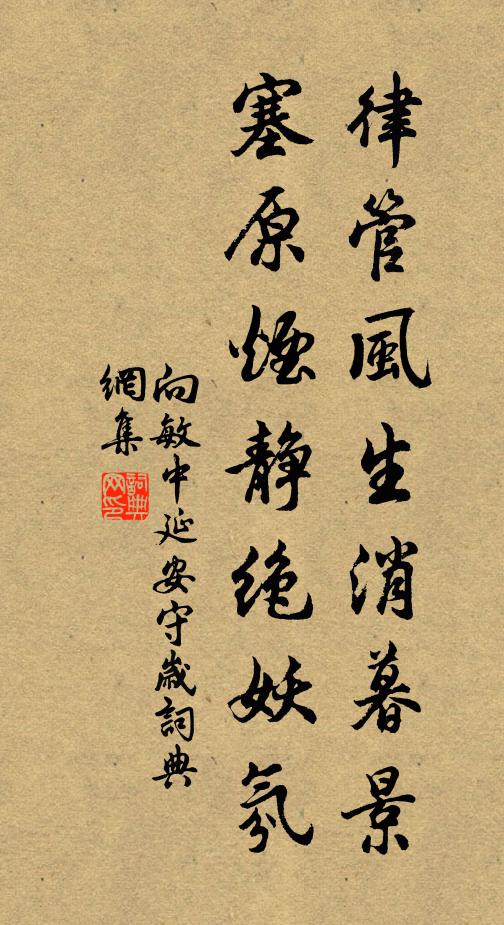 律管風生消暮景
塞原煙静絶妖氛
向敏中延安守歲詞典
網集
詞典
网印